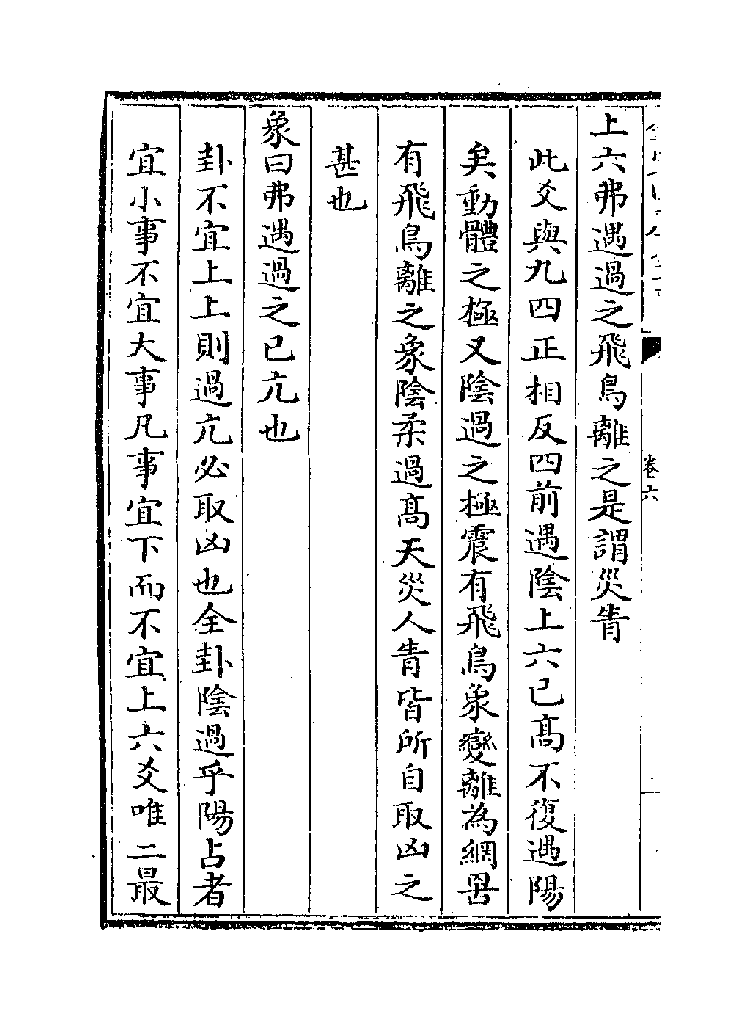 上六弗遇過之飛鳥離之是謂災眚
此爻與九四正相反四前遇陰上六已高不復遇陽
矣動體之極又陰過之極震有飛鳥象變離為網罟
有飛鳥離之象陰柔過高天災人眚皆所自取凶之
甚也
象曰弗遇過之已亢也
卦不宜上上則過亢必取凶也全卦陰過乎陽占者
宜小事不宜大事凡事宜下而不宜上六爻唯二最
卷六